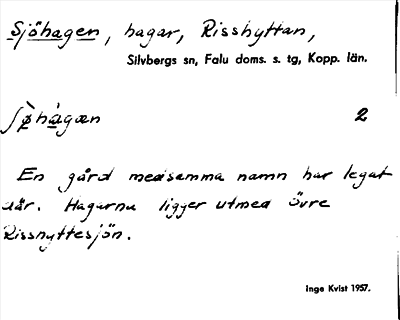 Sjöhagen, hagar, Risshyttan,
Silvbergs sn, Falu doms. s. tg, Kopp. län.
ʃø̀hàgæn 2
En gård med samma namn har legat
där. Hagarna ligger utmed Övre
Risshyttesjön.
Inge Kvist 1957.